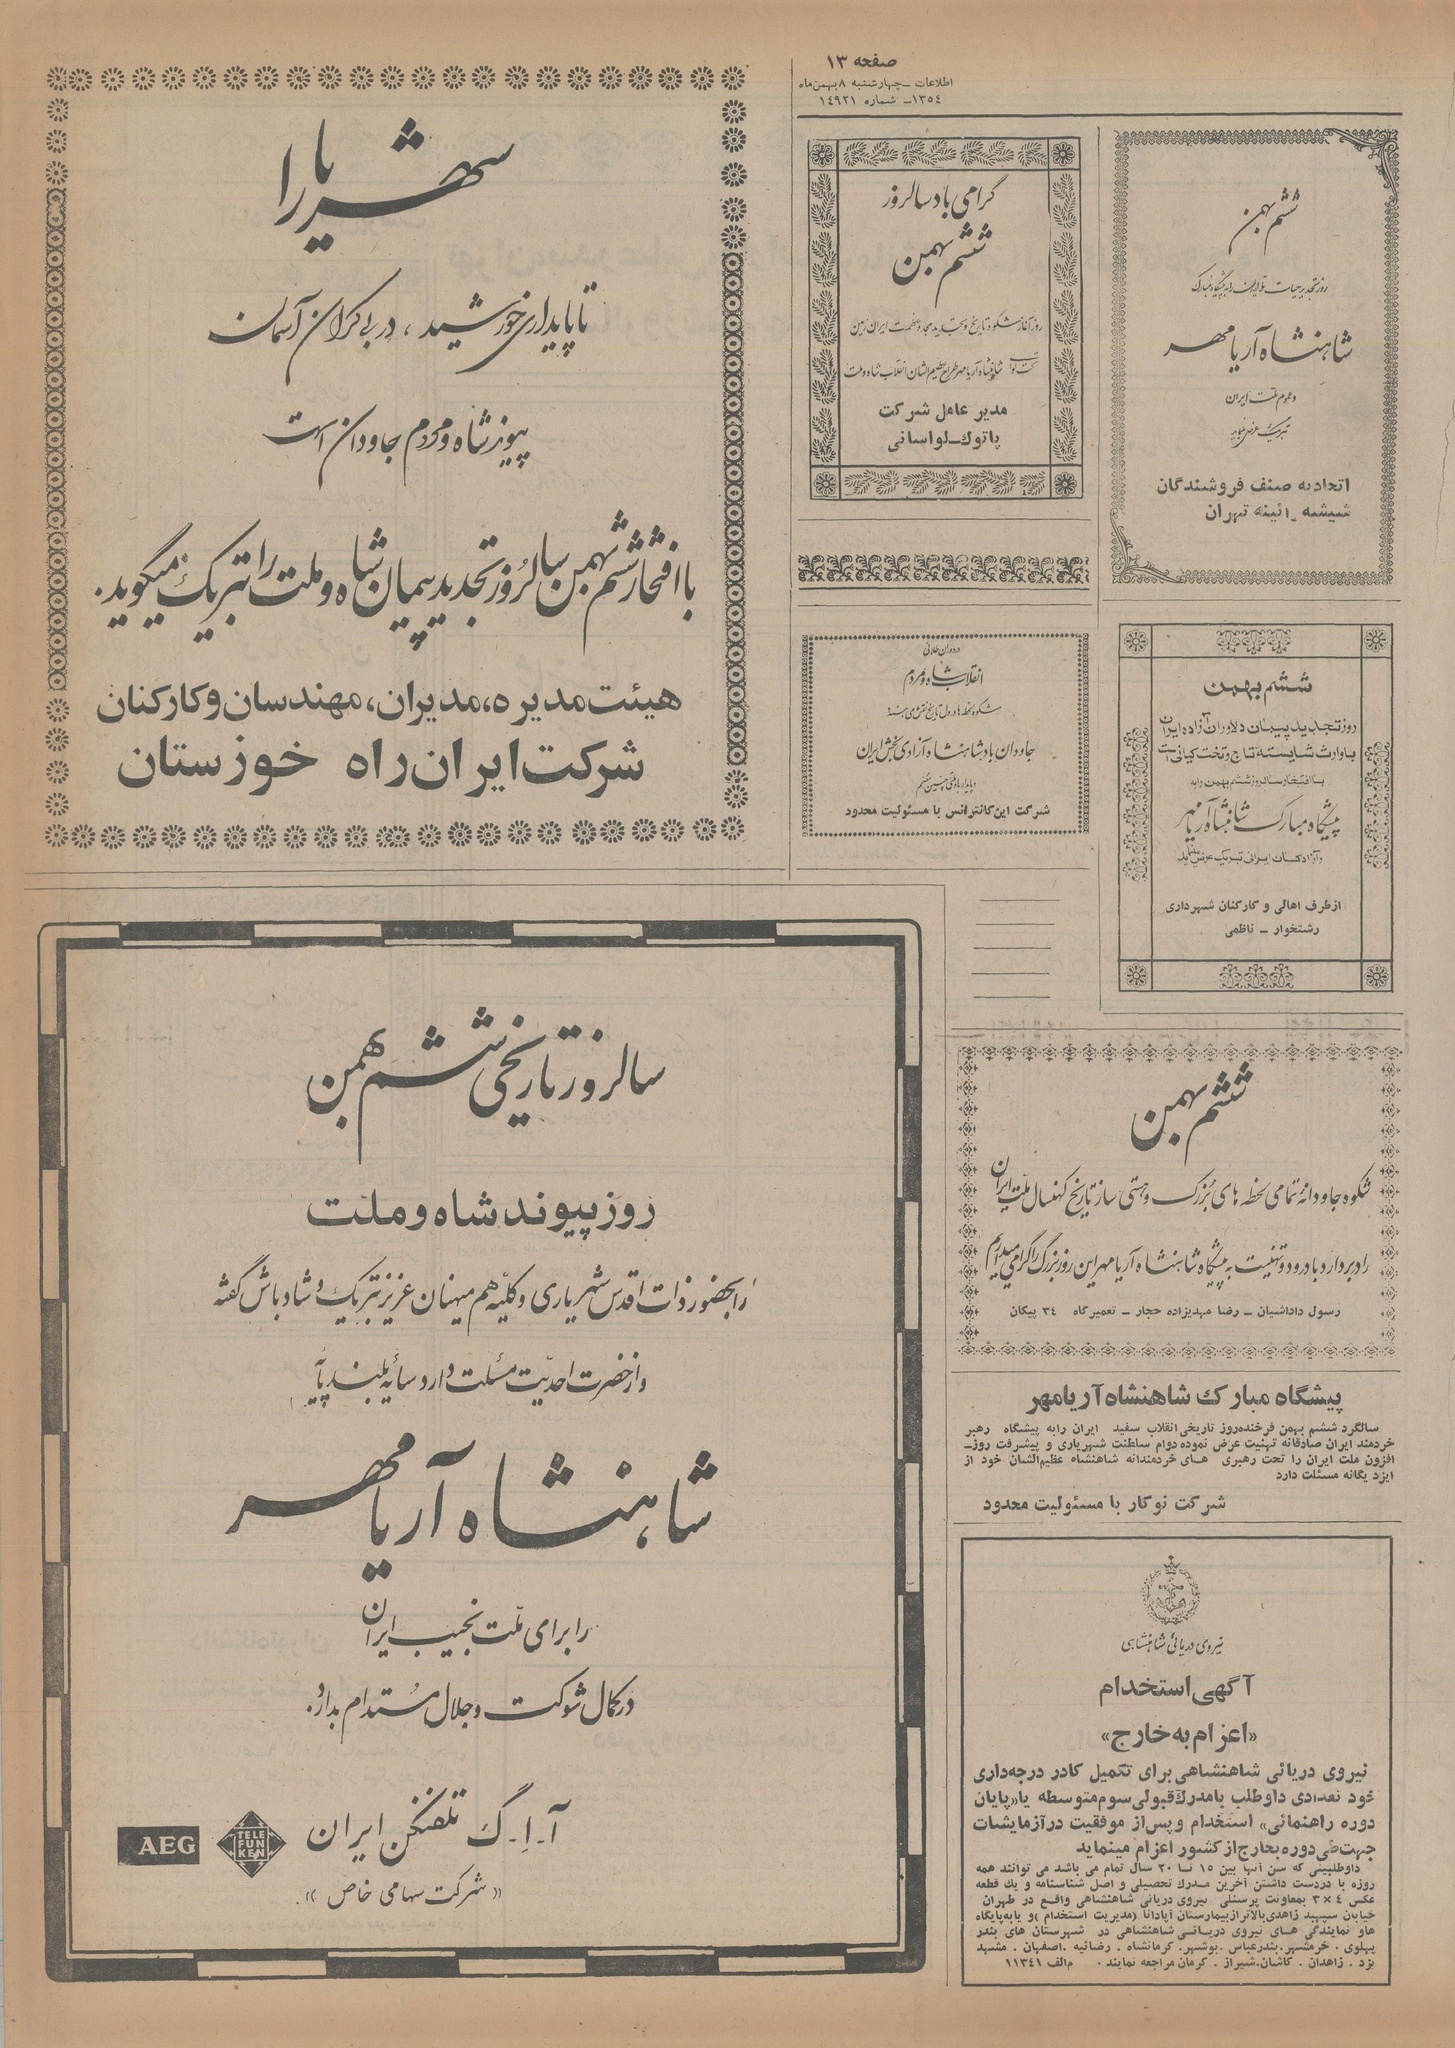 صفحه ۱۳
اطلاعات ـ چهارشنبه ۸ بهمن‌ماه
۱۳۵٤ـ شماره ۱٤۹۲۱
ششم بهمن
روز تجدید حیات ملت ایران را به پیشگاه مبارک
شاهنشاه آریامهر
و عموم ملت ایران
تبریک عرض مینماید
اتحادیه صنف فروشندگان
شیشه ـ آئینه تهران
گرامی باد سالروز
ششم بهمن
روز آغاز شکوه تاریخ و تجدید مجد و عظمت ایران زمین
شاهنشاه آریامهر طراح عظیم الشان انقلاب شاه و ملت
مدیر عامل شرکت
پاتوك‌ـلواسانی
شهریارا
تا پایداری خورشید، در بی کران آسمان
پیوند شاه و مردم جاودان است
با افتخار ششم بهمن سالروز تجدید پیمان شاه و ملت را تبریک میگوید.
هیئت مدیره، مدیران، مهندسان و کارکنان
شرکت ایران راه خوزستان
در دوران طلائی
انقلاب شاه و مردم
شکوه لحظه ها در دل تاریخ نقش می بندد
جاودان باد شاهنشاه آزادی بخش ایران
شرکت این کانترانس با مسئولیت محدود
ششم بهمن
روز تجدید پیمان دلاوران آزاده ایران
با وارث شایسته تاج و تخت کیانی است
با افتخار سالروز ششم بهمن را به
پیشگاه مبارک شاهنشاه آریامهر
و آزادگان ایرانی تبریک عرض مینماید
از طرف اهالی و کارکنان شهرداری
رشتخوار ـ ناظمی
ششم بهمن
شکوه جاودانه تمامی لحظه های بزرگ و هستی ساز تاریخ کهنسال ملت ایران
را دربردارد با درود و تهنیت به پیشگاه شاهنشاه آریامهر این روز بزرگ را گرامی میداریم
رسول داداشیان ـ رضا مهدیزاده حجار ـ تعمیرگاه ۳٤ پیکان
پیشگاه مبارك شاهنشاه آریامهر
سالگرد ششم بهمن فرخنده‌روز تاریخی انقلاب سفید ایران رابه پیشگاه رهبر
خردمند ایران صادقانه تهنیت عرض نموده دوام سلطنت شهریاری و پیشرفت روزـ
افزون ملت ایران را تحت رهبری های خردمندانه شاهنشاه عظیم‌الشان خود از
ایزد یگانه مسئلت دارد
شرکت نوکار با مسئولیت محدود
سالروز تاریخی ششم بهمن
روز پیوند شاه و ملت
را بحضور ذات اقدس شهریاری و کلیه هم میهنان عزیز تبریک و شادباش گفته
و از حضرت احدیت مسئلت دارد سایه بلند پایه
شاهنشاه آریامهر
را برای ملت نجیب ایران
در کمال شوکت و جلال مستدام بدارد.
آ.ا.گ تلفنکن ایران
TELE
FUN
KEN
AEG
«شرکت سهامی خاص».
نیروی دریائی شاهنشاهی
آگهی استخدام
«اعزام به خارج»
نیروی دریائی شاهنشاهی برای تکمیل کادر درجه‌داری
خود تعدادی داوطلب بامدرك قبولی سوم متوسطه یا«پایان
دوره راهنمائی» استخدام و پس‌از موفقیت درآزمایشات
جهت‌طی دوره بخارج‌از کشور اعزام مینماید
داوطلبینی که سن آنها بین ۱۵ تا ۲۰ سال تمام می باشد می توانند همه
روزه با دردست داشتن آخرین مدرك تحصیلی و اصل شناسنامه و یك قطعه
عکس ٤ × ۳ بمعاونت پرسنلی نیروی دریائی شاهنشاهی واقع در طهران
خیابان سپهبد زاهدی‌بالاتر از بیمارستان آپادانا (مدیریت استخدام )و یابه‌پایگاه
هاو نمایندگی های نیروی دریائی شاهنشاهی در شهرستان های بندر
پهلوی . خرمشهر. بندرعباس. بوشهر. کرمانشاه . رضائیه .اصفهان . مشهد
یزد . زاهدان . کاشان.شیراز . کرمان مراجعه نمایند . م‌الف ۱۱۳٤۱